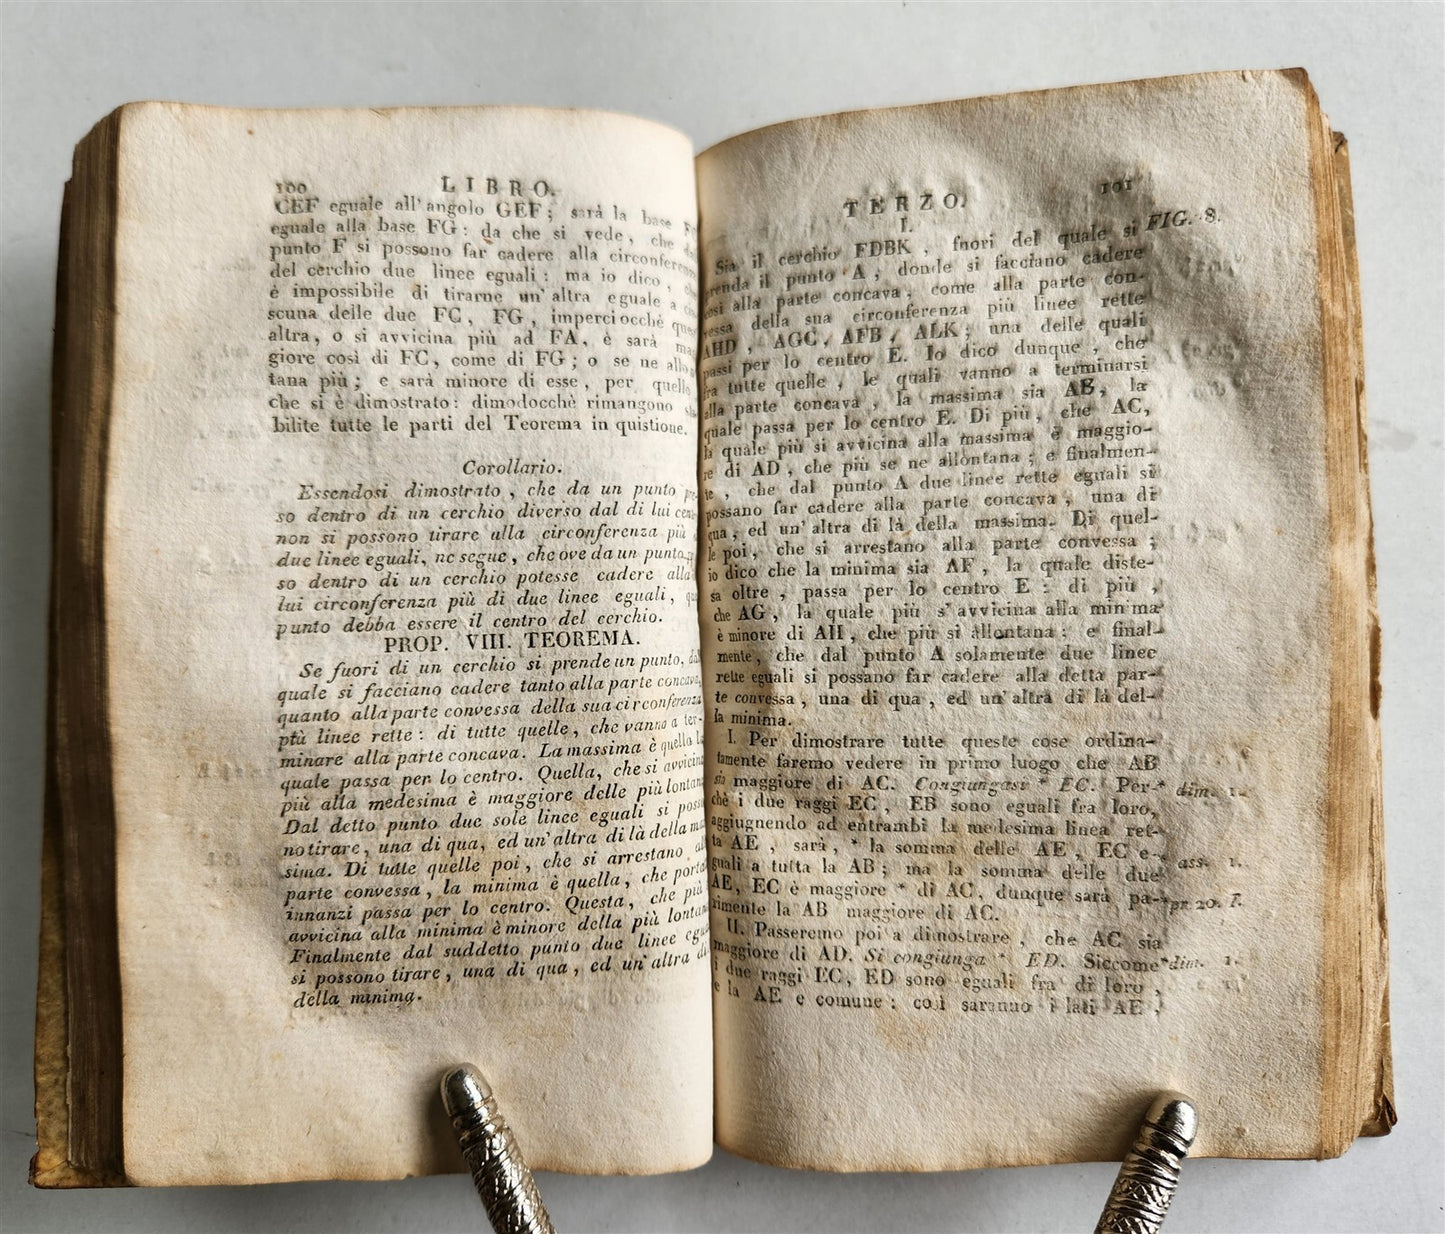 100
LIBRO.
CEF eguale all'angolo GEF; sarà la base
eguale alla base FG: da che si vede, che
punto F si possono far cadere alla circonferen
del cerchio due linee eguali: ma io dico,
è impossibile di tirarne un'altra eguale a
scuna delle due FC, FG, imperciocchè
altra, o si avvicina più ad FA, è sarà
giore così di FC, come di FG; o se ne
tana più; e sarà minore di esse, per quello
che si è dimostrato: dimodocchè rimangono
bilite tutte le parti del Teorema in quistione.
Corollario.
Essendosi dimostrato, che da un punto
so dentro di un cerchio diverso dal di lui
non si possono tirare alla circonferenza più
due linee eguali, ne segue, che ove da un punto
so dentro di un cerchio potesse cadere alla
lui circonferenza più di due linee eguali,
punto debba essere il centro del cerchio.
PROP. VIII. TEOREMA.
Se fuori di un cerchio si prende un punto,
quale si facciano cadere tanto alla parte concava,
quanto alla parte convessa della sua circonferenza
più linee rette: di tutte quelle, che vanno a ter-
minare alla parte concava. La massima è quella
quale passa per lo centro. Quella, che si avvicina
più alla medesima è maggiore delle più lontan
Dal detto punto due sole linee eguali si poss
no tirare, una di qua, ed un'altra di là della
sima. Di tutte quelle poi, che si arrestano
parte convessa, la minima è quella, che
innanzi passa per lo centro. Questa, che più
avvicina alla minima è minore della più lontan
Finalmente dal suddetto punto due linee
si possono tirare, una di qua, ed un'altra di
della minima.
TERZO.
101
I.
Sia il cerchio FDBK, fuori del quale si FIG. 8.
prenda il punto A, donde si facciano cadere
così alla parte concava, come alla parte con-
vessa della sua circonferenza più linee rette
AHD, AGC, AFB, ALK; una delle quali
passi per lo centro E. Io dico dunque, che
fra tutte quelle, le quali vanno a terminarsi
alla parte concava, la massima sia AB, la
quale passa per lo centro E. Di più, che AC,
la quale più si avvicina alla massima è maggio-
re di AD, che più se ne allontana; e finalmen-
te, che dal punto A due linee rette eguali si
possano far cadere alla parte concava, una di
qua, ed un'altra di là della massima. Di quel-
le poi, che si arrestano alla parte convessa;
io dico che la minima sia AF, la quale diste-
sa oltre, passa per lo centro E: di più,
che AG, la quale più s'avvicina alla minima
è minore di AH, che più si allontana: e final-
mente, che dal punto A solamente due linee
rette eguali si possano far cadere alla detta par-
te convessa, una di qua, ed un'altra di là del-
la minima.
I. Per dimostrare tutte queste cose ordina-
tamente faremo vedere in primo luogo che AB
sia maggiore di AC. Congiungasi * EC. Per- * dim. 1.
chè i due raggi EC, EB sono eguali fra loro,
aggiugnendo ad entrambi la medesima linea ret-
ta AE, sarà, * la somma delle AE, EC e- * ass. 1.
guali a tutta la AB; ma la somma delle due
AE, EC è maggiore * di AC, dunque sarà pa- * pr. 20. I.
rimente la AB maggiore di AC.
II. Passeremo poi a dimostrare, che AC sia
maggiore di AD. Si congiunga * ED. Siccome * dim. 1.
i due raggi EC, ED sono eguali fra di loro,
e la AE e comune; così saranno i lati AE,